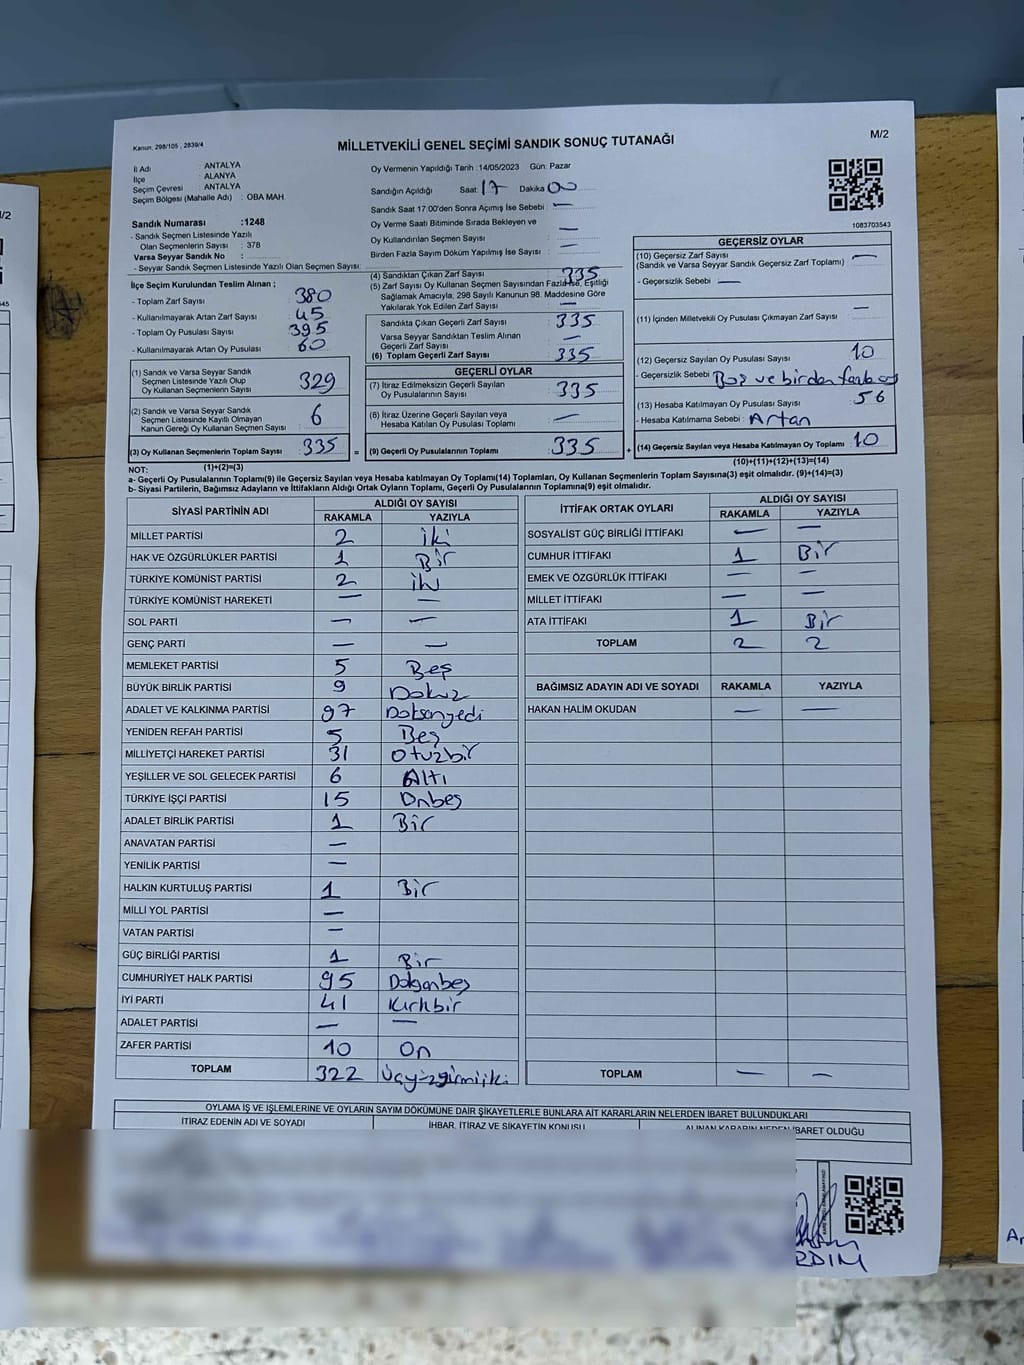 Kanun, 298/105 , 2839/4
MİLLETVEKİLİ GENEL SEÇİMİ SANDIK SONUÇ TUTANAĞI
M/2
İl Adı : ANTALYA
İlçe : ALANYA
Seçim Çevresi : ANTALYA
Seçim Bölgesi (Mahalle Adı) : OBA MAH
Oy Vermenin Yapıldığı Tarih :14/05/2023 Gün: Pazar
Sandığın Açıldığı Saat 17 Dakika 00
Sandık Saat 17:00'den Sonra Açımış İse Sebebi : —
Oy Verme Saati Bitiminde Sırada Bekleyen ve
Oy Kullandırılan Seçmen Sayısı : —
Birden Fazla Sayım Döküm Yapılmış İse Sayısı : —
1083703543
Sandık Numarası :1248
- Sandık Seçmen Listesinde Yazılı
Olan Seçmenlerin Sayısı : 378
Varsa Seyyar Sandık No :
- Seyyar Sandık Seçmen Listesinde Yazılı Olan Seçmen Sayısı:
İlçe Seçim Kurulundan Teslim Alınan ;
- Toplam Zarf Sayısı : 380
- Kullanılmayarak Artan Zarf Sayısı : 45
- Toplam Oy Pusulası Sayısı : 395
- Kullanılmayarak Artan Oy Pusulası : 60
(1) Sandık ve Varsa Seyyar Sandık
Seçmen Listesinde Yazılı Olup
Oy Kullanan Seçmenlerin Sayısı : 329
(2) Sandık ve Varsa Seyyar Sandık
Seçmen Listesinde Kayıtlı Olmayan
Kanun Gereği Oy Kullanan Seçmen Sayısı : 6
(3) Oy Kullanan Seçmenlerin Toplam Sayısı : 335
(4) Sandıktan Çıkan Zarf Sayısı : 335
(5) Zarf Sayısı Oy Kullanan Seçmen Sayısından Fazla İse, Eşitliği
Sağlamak Amacıyla, 298 Sayılı Kanunun 98. Maddesine Göre
Yakılarak Yok Edilen Zarf Sayısı : —
Sandıkta Çıkan Geçerli Zarf Sayısı : 335
Varsa Seyyar Sandıktan Teslim Alınan
Geçerli Zarf Sayısı : —
(6) Toplam Geçerli Zarf Sayısı : 335
GEÇERLİ OYLAR
(7) İtiraz Edilmeksizin Geçerli Sayılan
Oy Pusulalarının Sayısı : 335
(8) İtiraz Üzerine Geçerli Sayılan veya
Hesaba Katılan Oy Pusulası Toplamı : —
= (9) Geçerli Oy Pusulalarının Toplamı : 335
GEÇERSİZ OYLAR
(10) Geçersiz Zarf Sayısı : —
(Sandık ve Varsa Seyyar Sandık Geçersiz Zarf Toplamı)
- Geçersizlik Sebebi : —
(11) İçinden Milletvekili Oy Pusulası Çıkmayan Zarf Sayısı : —
(12) Geçersiz Sayılan Oy Pusulası Sayısı : 10
- Geçersizlik Sebebi : Boş ve birden fazla oy
(13) Hesaba Katılmayan Oy Pusulası Sayısı : 56
- Hesaba Katılmama Sebebi : Artan
+ (14) Geçersiz Sayılan veya Hesaba Katılmayan Oy Toplamı : 10
NOT: (1)+(2)=(3)
(10)+(11)+(12)+(13)=(14)
a- Geçerli Oy Pusulalarının Toplamı(9) ile Geçersiz Sayılan veya Hesaba katılmayan Oy Toplamı(14) Toplamları, Oy Kullanan Seçmenlerin Toplam Sayısına(3) eşit olmalıdır. (9)+(14)=(3)
b- Siyasi Partilerin, Bağımsız Adayların ve İttifakların Aldığı Ortak Oyların Toplamı, Geçerli Oy Pusulalarının Toplamına(9) eşit olmalıdır.
SİYASİ PARTİNİN ADI ALDIĞI OY SAYISI
RAKAMLA YAZIYLA
MİLLET PARTİSİ 2 iki
HAK VE ÖZGÜRLÜKLER PARTİSİ 1 Bir
TÜRKİYE KOMÜNİST PARTİSİ 2 iki
TÜRKİYE KOMÜNİST HAREKETİ — —
SOL PARTİ — —
GENÇ PARTİ — —
MEMLEKET PARTİSİ 5 Beş
BÜYÜK BİRLİK PARTİSİ 9 Dokuz
ADALET VE KALKINMA PARTİSİ 97 Doksanyedi
YENİDEN REFAH PARTİSİ 5 Beş
MİLLİYETÇİ HAREKET PARTİSİ 31 Otuzbir
YEŞİLLER VE SOL GELECEK PARTİSİ 6 Altı
TÜRKİYE İŞÇİ PARTİSİ 15 Onbeş
ADALET BİRLİK PARTİSİ 1 Bir
ANAVATAN PARTİSİ —
YENİLİK PARTİSİ —
HALKIN KURTULUŞ PARTİSİ 1 Bir
MİLLİ YOL PARTİSİ —
VATAN PARTİSİ —
GÜÇ BİRLİĞİ PARTİSİ 1 Bir
CUMHURİYET HALK PARTİSİ 95 Doksanbeş
İYİ PARTİ 41 Kırkbir
ADALET PARTİSİ — —
ZAFER PARTİSİ 10 On
TOPLAM 322 Üçyüzyirmiiki
İTTİFAK ORTAK OYLARI ALDIĞI OY SAYISI
RAKAMLA YAZIYLA
SOSYALİST GÜÇ BİRLİĞİ İTTİFAKI — —
CUMHUR İTTİFAKI 1 Bir
EMEK VE ÖZGÜRLÜK İTTİFAKI — —
MİLLET İTTİFAKI — —
ATA İTTİFAKI 1 Bir
TOPLAM 2 2
BAĞIMSIZ ADAYIN ADI VE SOYADI RAKAMLA YAZIYLA
HAKAN HALİM OKUDAN — —
TOPLAM — —
OYLAMA İŞ VE İŞLEMLERİNE VE OYLARIN SAYIM DÖKÜMÜNE DAİR ŞİKAYETLERLE BUNLARA AİT KARARLARIN NELERDEN İBARET BULUNDUKLARI
İTİRAZ EDENİN ADI VE SOYADI İHBAR, İTİRAZ VE ŞİKAYETİN KONUSU ALINAN KARARIN NEDEN İBARET OLDUĞU